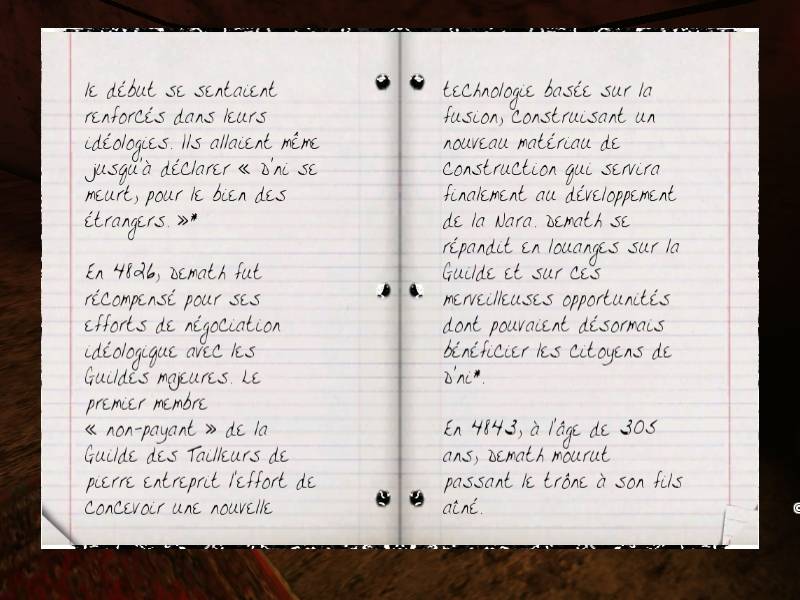 le début se sentaient
renforcés dans leurs
idéologies. Ils allaient même
jusqu'à déclarer « D'ni se
meurt, pour le bien des
étrangers. »*
En 4826, Demath fut
récompensé pour ses
efforts de négociation
idéologique avec les
Guildes majeures. Le
premier membre
« non-payant » de la
Guilde des Tailleurs de
pierre entreprit l'effort de
concevoir une nouvelle
technologie basée sur la
fusion, construisant un
nouveau matériau de
construction qui servira
finalement au développement
de la Nara. Demath se
répandit en louanges sur la
Guilde et sur ces
merveilleuses opportunités
dont pouvaient désormais
bénéficier les citoyens de
D'ni*.
En 4843, à l'âge de 305
ans, Demath mourut
passant le trône à son fils
aîné.